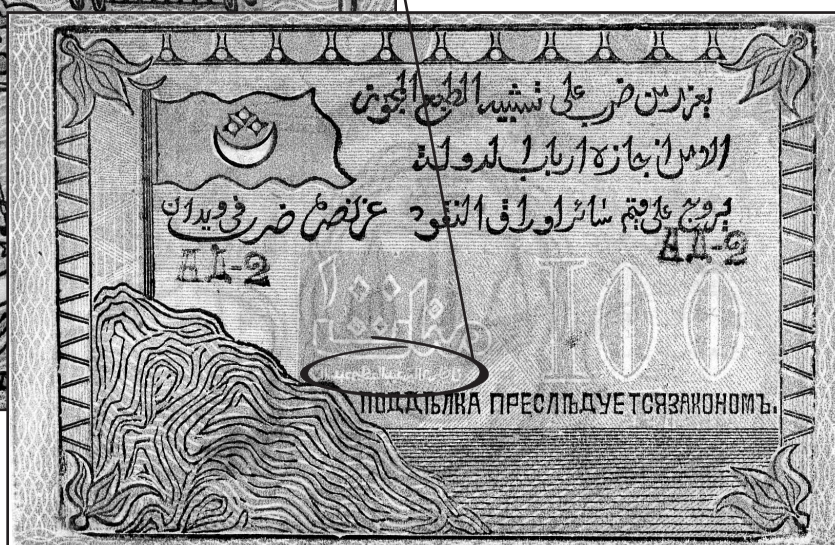 يعزر من ضرب على تشبيه الطبع المجوز
الامر انجازه ارباب لدولة
يروج على قيم سائر اوراق النقود عز نصره ضرب فى ويدان
АД-2
АД-2
١٠٠
100
ПОДДѢЛКА ПРЕСЛѢДУЕТСЯ ЗАКОНОМЪ.